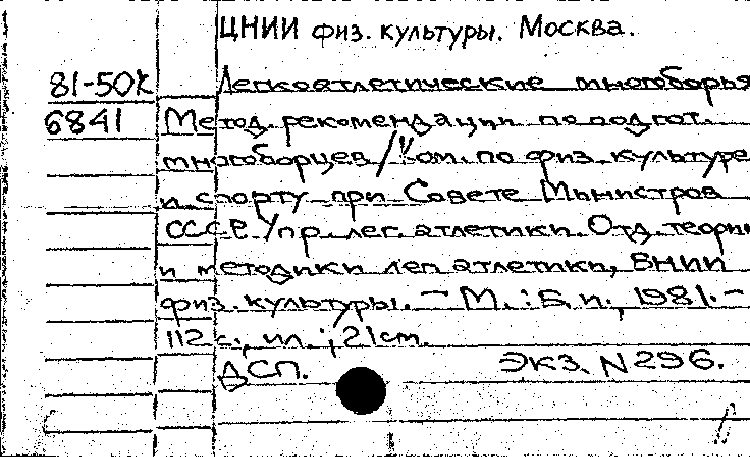 ЦНИИ физ. культуры. Москва.
81-50к Легкоатлетические многоборья
6841 Метод. рекомендации по подгот.
многоборцев / Ком. по физ. культуре
и спорту при Совете Министров
СССР. Упр. лег. атлетики. Отд. теории
и методики лег. атлетики, ВНИИ
физ. культуры. - М. : Б. и., 1981. -
112 с., ил. ; 21 cm.
ДСП. ЭКЗ. N 296.